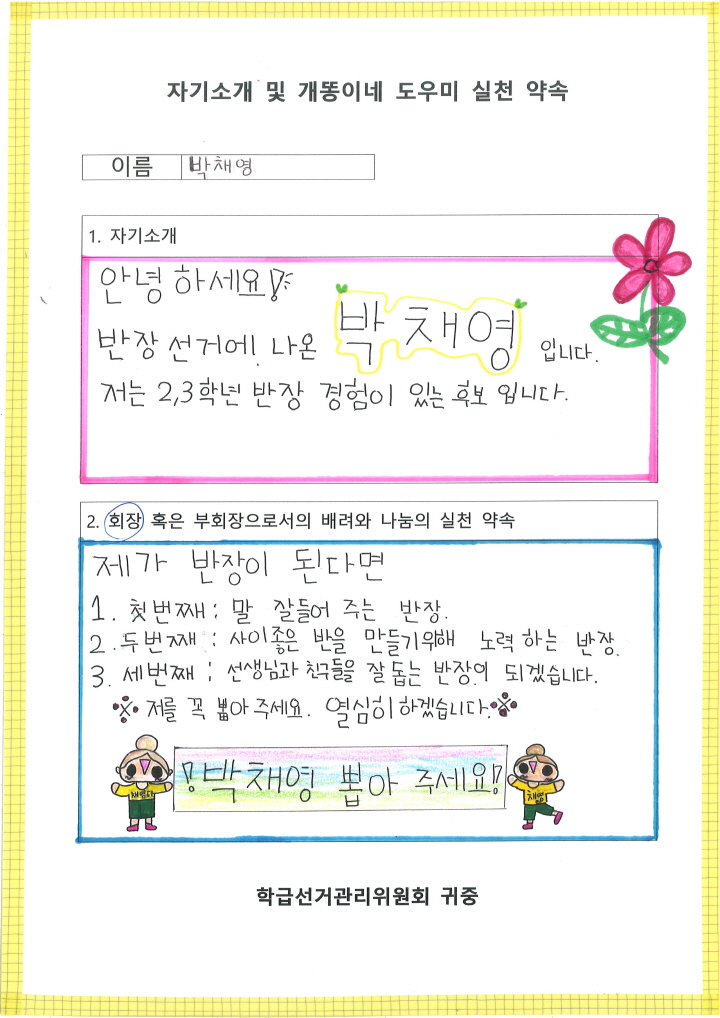 자기소개 및 개똥이네 도우미 실천 약속
이름 박채영
1. 자기소개
안녕 하세요!
반장 선거에! 나온 박채영 입니다.
저는 2,3학년 반장 경험이 있는 후보 입니다.
2. 회장 혹은 부회장으로서의 배려와 나눔의 실천 약속
제가 반장이 된다면
1. 첫번째 : 말 잘들어 주는 반장.
2. 두번째 : 사이좋은 반을 만들기위해 노력 하는 반장.
3. 세번째 : 선생님과 친구들을 잘 돕는 반장이 되겠습니다.
※ 저를 꼭 뽑아 주세요. 열심히하겠습니다.※
!박채영 뽑아 주세요!
학급선거관리위원회 귀중